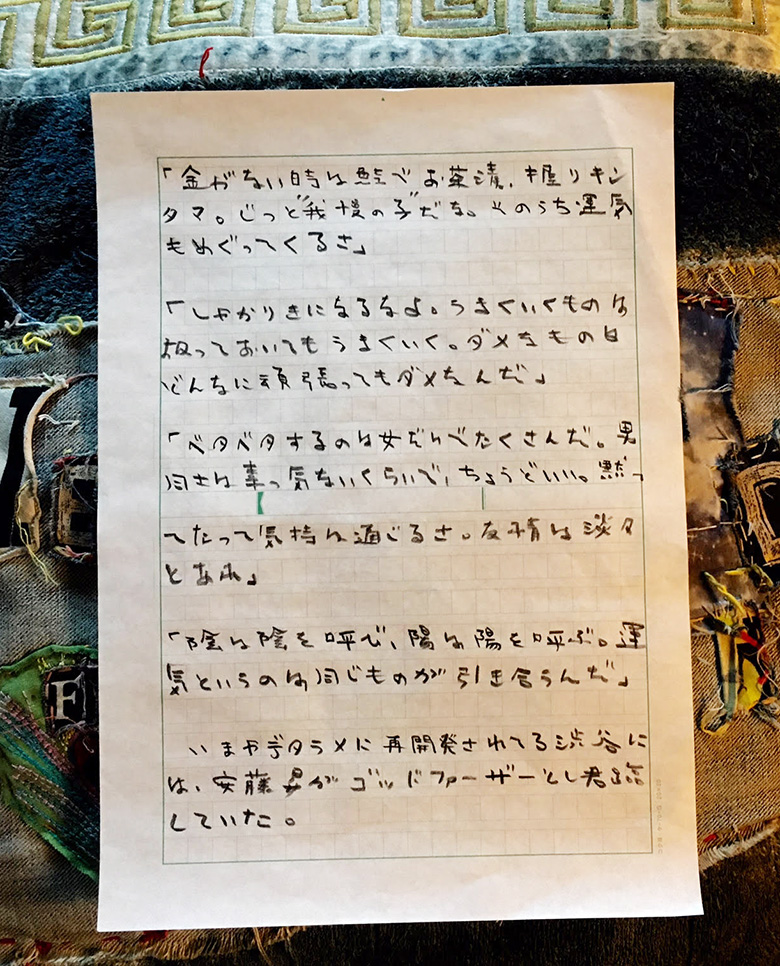 「金がない時は鮭でお茶漬、握りキン
タマ。じっと"我慢の子"だな。そのうち運気
もめぐってくるさ」
「しゃかりきになるなよ。うまくいくものは
扱っておいてもうまくいく。ダメなもの日
どんなに頑張ってもダメなんだ」
「ベタベタするのは女だけでたくさんだ。男
同士は素っ気ないくらいで、ちょうどいい。黙っ
てたって気持は通じるさ。友情は淡々
とあれ」
「陰は陰を呼び、陽は陽を呼ぶ。運
気というのは同じものが引き合うんだ」
いまやデタラメに再開発されてる渋谷に
は、安藤昇がゴッドファーザーとし君臨
していた。
E
F